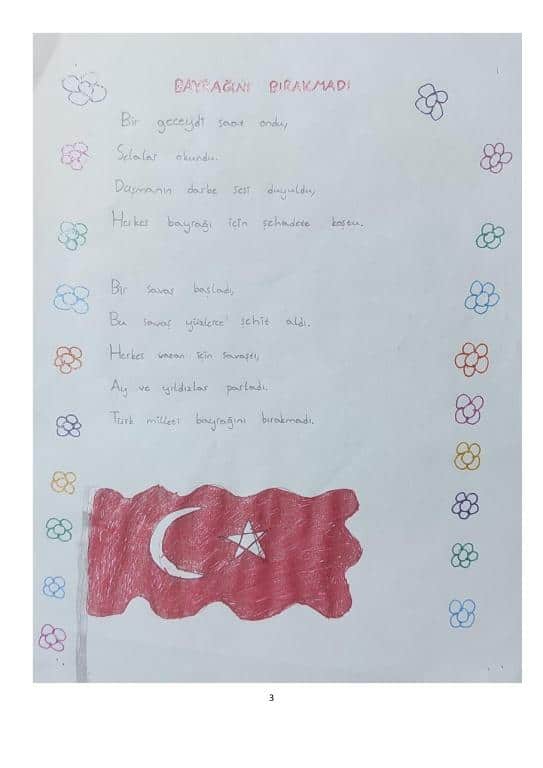 BAYRAĞINI BIRAKMADI
Bir geceydi saat ondu,
Selalar okundu.
Düşmanın darbe sesi duyuldu,
Herkes bayrağı için şehadete koştu.
Bir savaş başladı,
Bu savaş yüzlerce şehit aldı.
Herkes vatan için savaştı,
Ay ve yıldızlar parladı.
Türk milleti bayrağını bırakmadı.
3